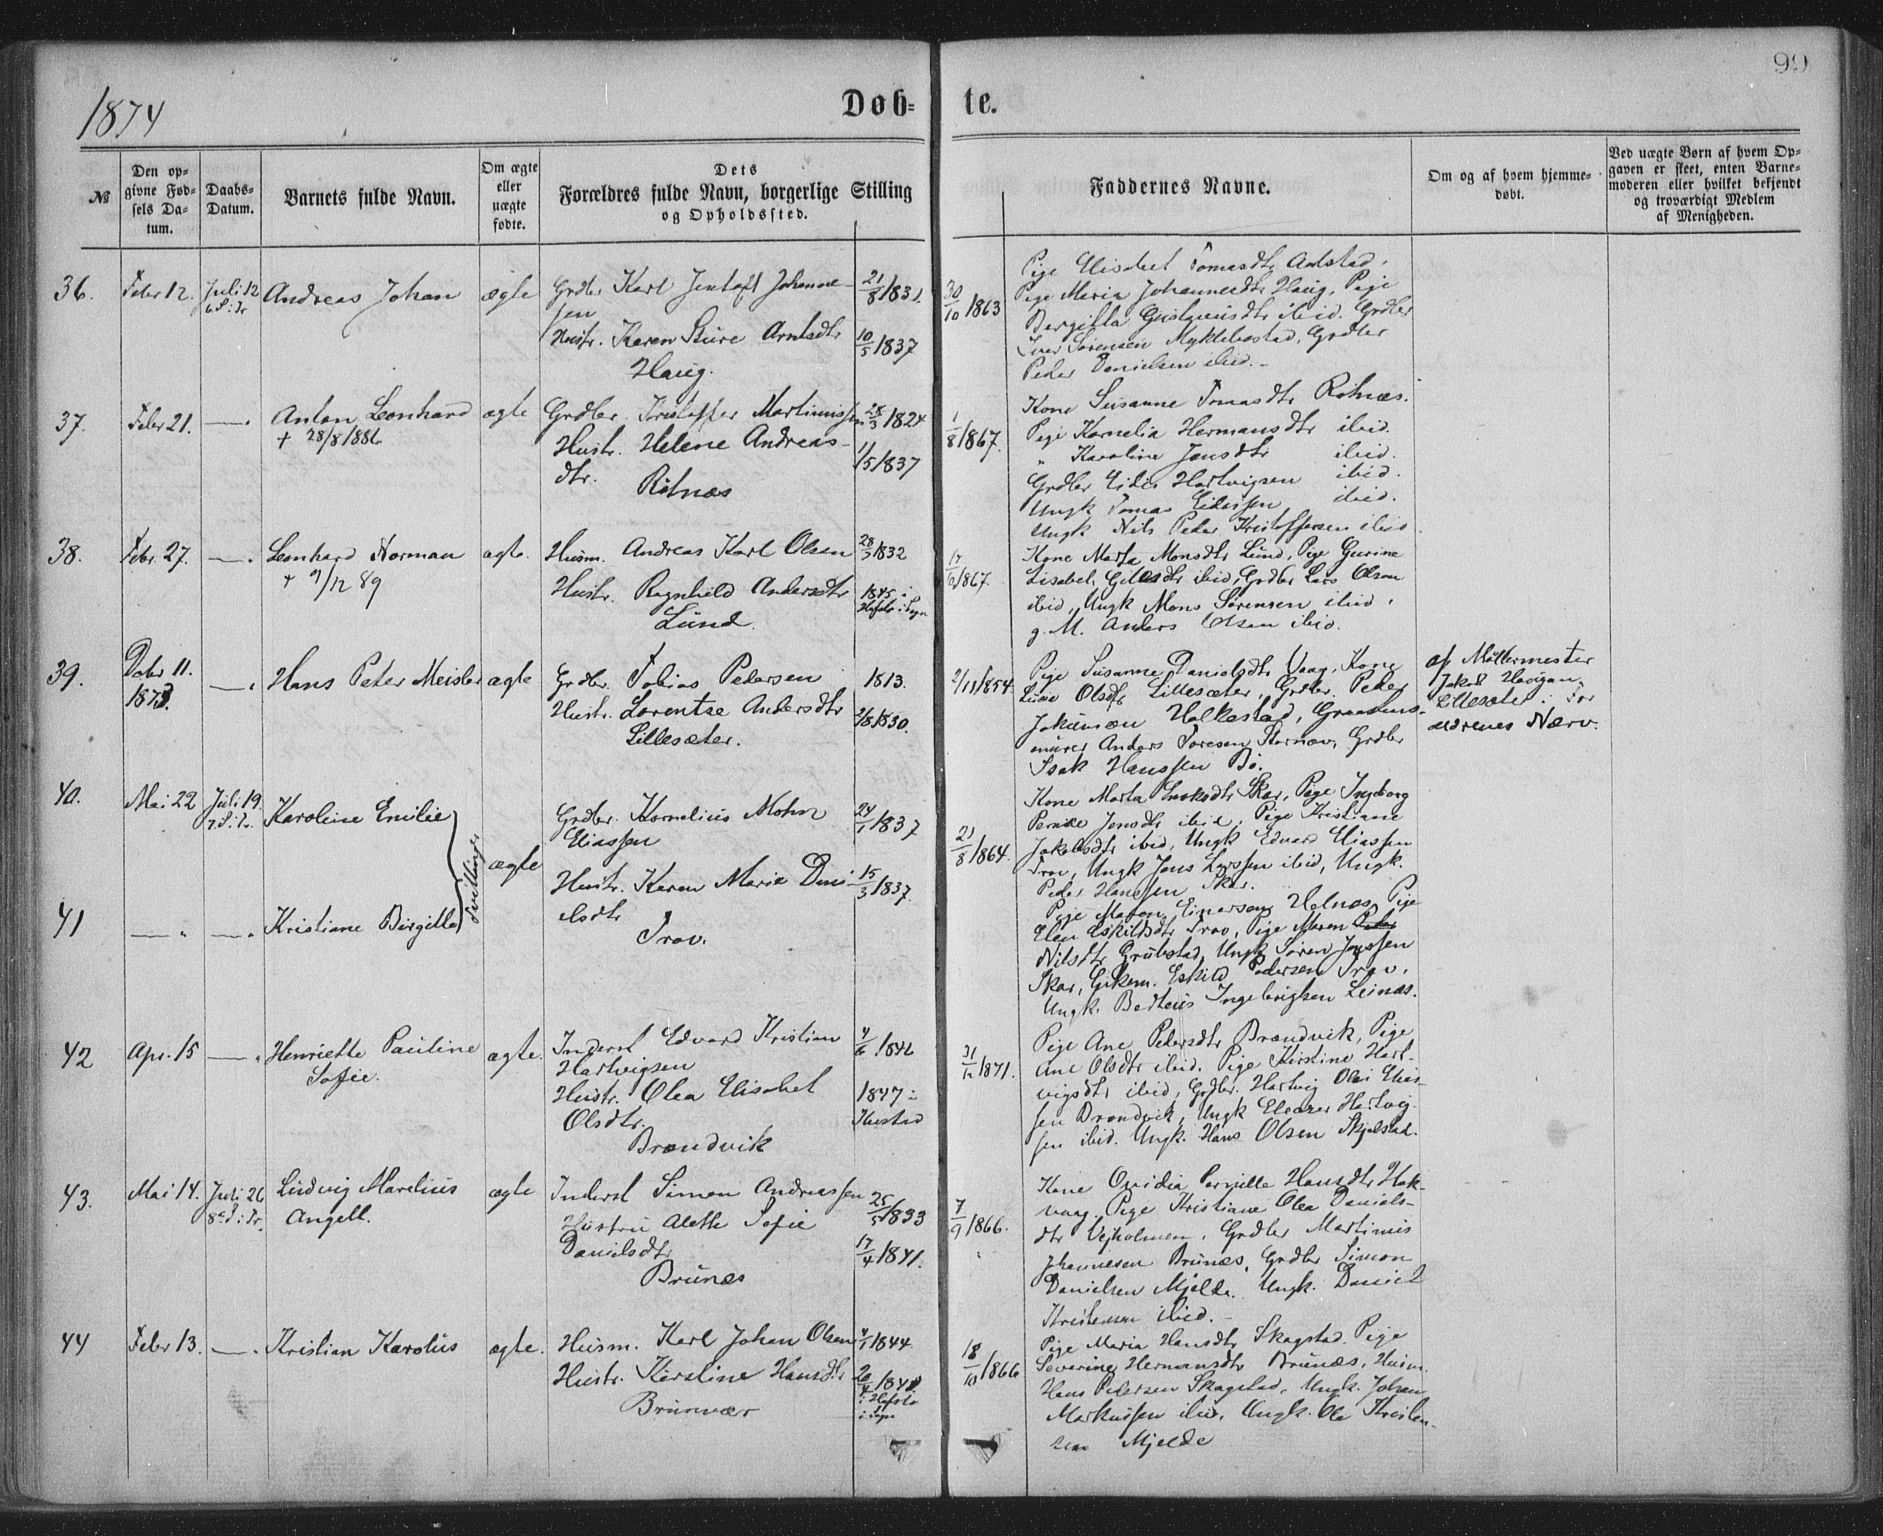 99
1874
Døb- te.
№
Den op-
givne Fød-
sels Da-
tum.
Daabs-
Datum.
Barnets fulde Navn.
Om ægte
eller
uægte
fødte.
Dets
Forældres fulde Navn, borgerlige Stilling
og Opholdssted.
Faddernes Navne.
Om og af hvem hjemme-
døbt.
Ved uægte Børn af hvem Op-
gaven er skeet, enten Barne-
moderen eller hvilket bekjendt
og troværdigt Medlem
af Menigheden.
36. Febr 12. Juli 12 Andreas Johan ægte
6. S. i. Tr
Grdbr. Karl Jentoft Johanne-
sen
21/8 1831.
Hustr. Karen Sture Arntsdtr
10/5 1837
Haug.
30/10 1863
Pige Elisabet Tomasdtr
Pige Maria Johannesdtr Haug, Pige
Bergitta ibid. Grdbr
Iver Sørensen Myklebostad, Grdbr
Peder Danielsen ibid.
37. Febr 21. —"— Anton Leonhard ægte
+ 28/8 1886
Grdbr. Kristoffer Martinussen 28/3 1824
Hustr. Helene Andreas-
dtr.
11/5 1837
Rötnæs
1/8 1867.
Kone Susanne Tomasdtr Rötnæs.
Pige Kornelia Hermansdtr ibid.
" Karoline Jonsdtr ibid.
Grdbr Eidis Hartvigsen ibid.
Ungk Tomas Eidissen ibid.
Ungk Nils Peder Kristoffersen ibid
38. Febr. 27. —"— Leonhard Norman ægte.
+ 9/12 89
Husm. Andreas Karl Olsen 28/3 1832
Hustr. Ragnhild Andersdtr 1845 i
Hafslo i Sogn
Lund.
1867.
Kone Marta Monsdtr Lund, Pige Gurine
Lisabet, ibid, Grdbr Lars Olsen
ibid, Ungk Mons Sørensen ibid,
g. M. Anders Olsen ibid.
39. Debr 11. —"— Hans Peter Meisler ægte
1873.
Grdbr. Tobias Pedersen 1813.
Hustr. Lorentse Andersdtr 2/8 1830.
Lillesæter.
2/11 1854.
Pige Susanne Danielsdtr Vaag, Kone
Olsdtr Lillesæter, Grdbr. Peder
Jakobsen Halkestad,
Anders Toresen Stornæv, Grdbr
Isak Hanssen Bö.
af Möllermester
Jakob Haagan,
Lillesæter i For
ældrenes Nærv.
40. Mai 22 Juli 19. Karoline Emilie
7. S. i. Tr.
Tvillinger
ægte
Grdbr. Kornelius Mohn 24/1 1837
Eliassen
Hustr. Karen Marie Dani- 15/3 1837.
elsdtr
Trov.
21/8 1864.
Kone Marta Isaksdtr Skar, Pige Ingeborg
Pernille Jonsdtr ibid, Pige Kristiane
Jakobsdtr ibid, Ungk Edvard Eliassen
Trov, Ungk Jens Larssen ibid, Ungk.
Peder Hanssen Skar.
41 —"— —"— Kristiane Birgitta
Pige Maren Einarsong Helnes, Pige
Elen Eskildsdtr Trov, Pige Maren
Nilsdtr Grubstad, Ungk Sören Jenssen
Skar, Enkem. Eskild Pedersen Trov,
Ungk. Berteus Ingebrigtsen Leinæs.
42 Apr. 15 —"— Henriette Pauline ægte.
Sofie.
Inderst Edvard Kristian 4/6 1846
Hartvigsen
Hustr. Olea Elisabet 1847 i
Olsdtr. Thustad
Brændvik
31/12 1871.
Pige Ane Pedersdtr Brændvik, Pige
Ane Olsdtr ibid. Pige Kirstine Hart-
vigsdtr ibid, Grdbr. Hartvig Olai Elias-
sen Brændvik, Ungk Eleazer Hartvig-
sen ibid. Ungk. Hans Olsen Skjelstad.
43. Mai 14. Juli 26 Ludvig Marelius ægte
8de S. i. Tr. Angell.
Inderst Simon Andreassen 25/5 1833
Hustru Alette Sofie
Danielsdtr 17/4 1841.
Brunæs
7/9 1866.
Kone Ovidia Pernille Hansdtr Hak-
vaag, Pige Kristiane Olea Daniels-
dtr Vejholmen, Grdbr Martinus
Johannesen Brunæs, Grdbr Simon
Danielsen Mjelde. Ungk. Daniel
Kristensen ibid.
44 Febr 13. —"— Kristian Karolus ægte.
Husm. Karl Johan Olsen 4/1 1844.
Hustr. Kirstine Hansdtr 20/4 1848
i Hafslo
i Sogn
Brunvær
18/10 1866
Pige Maria Hansdtr Skagstad, Pige
Severine Hermansdtr Brunæs, Husm.
Hans Pedersen Skagstad, Ungk. Johan
Markussen ibid, Ungk. Ole Kristen-
sen Mjelde